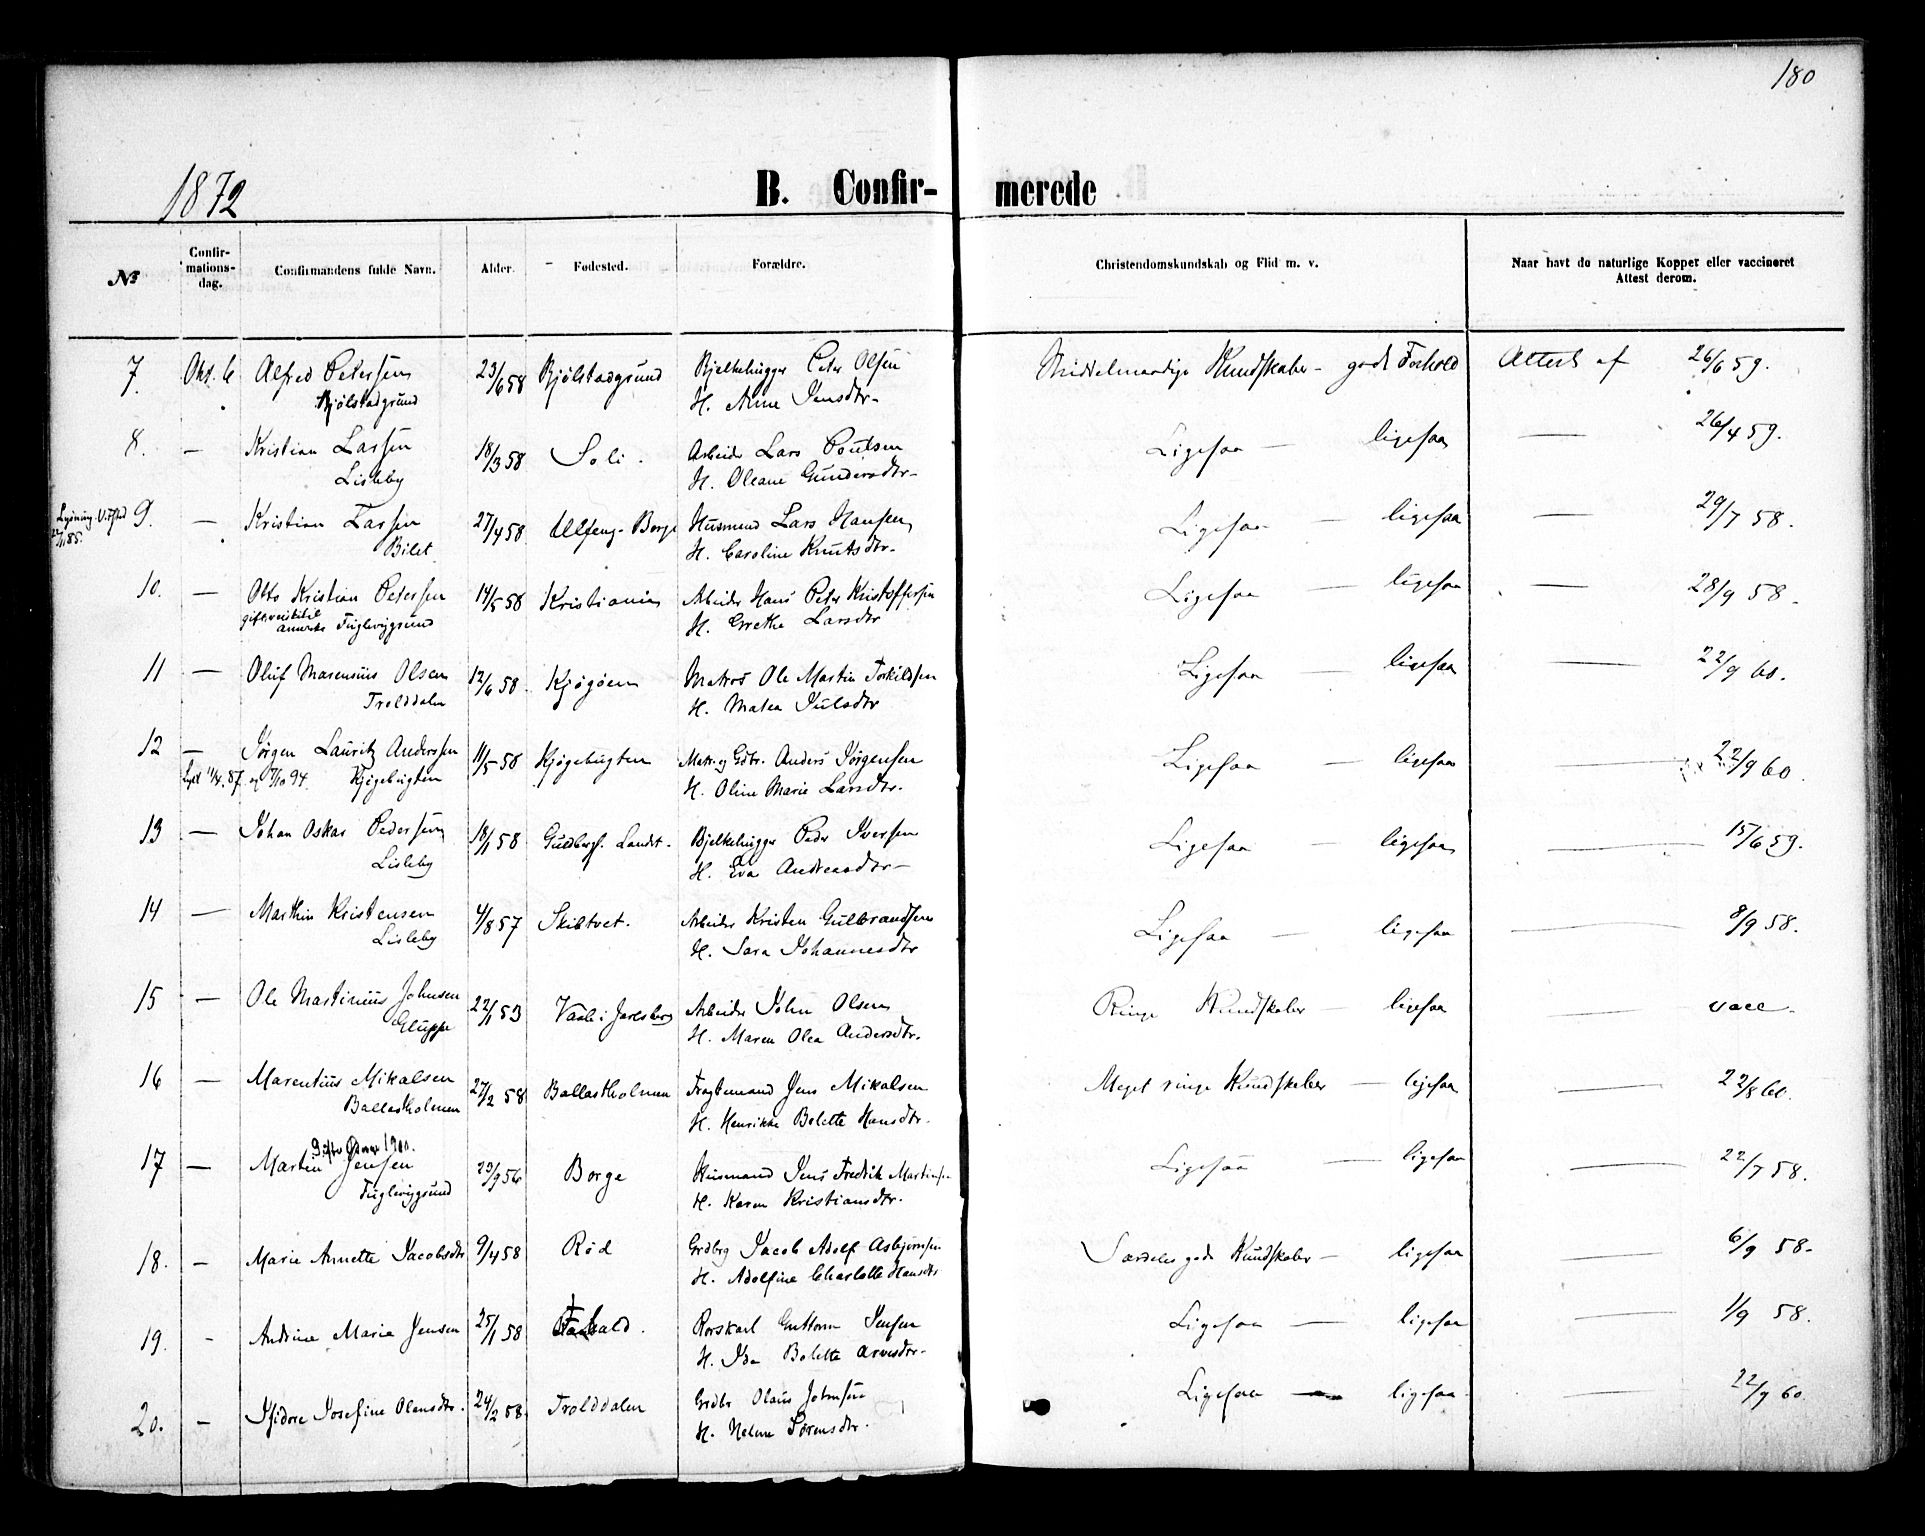 180
1872
B. Confir- merede
№
Confir-
mations-
dag.
Confirmandens fulde Navn.
Alder.
Fødested.
Forældre.
Christendomskundskab og Flid m. v.
Naar havt de naturlige Kopper eller vaccineret
Attest derom.
7. Okt. 6 Alfred Petersen 23/6 58 Kjølstadgrund Bjelkehugger Peter Olsen Middelmaadige Kundskaber - godt Forhold Attest af 26/6 59.
Kjølstadgrund H. Anne Jensdtr.
8. — Kristian Larsen 18/3 58 Soli. Arbeider Lars Poulsen Ligesaa — ligesaa — 26/4 59.
Lisleby H. Oleane Gundersdtr.
9. — Kristian Larsen 27/4 58 Ulfeng - Borge Husmand Lars Hansen Ligesaa — ligesaa — 29/7 58.
Lysning
Bilet H. Caroline Knutsdtr.
10. — Otto Kristian Petersen 14/5 58 Kristiania Arbeider Hans Peter Kristoffersen Ligesaa — ligesaa — 28/9 58.
Fuglevigsund H. Grethe Larsdtr
11 — Oluf Marensius Olsen 12/6 58 Kjøgøen Matros Ole Martin Torkildsen Ligesaa — ligesaa — 22/9 60.
Trolddalen H. Matea Julsdtr
12 — Jørgen Lauritz Anderssen 11/5 58 Kjøgebugten Matr. og Gdbr. Anders Jørgensen Ligesaa — ligesaa — 22/9 60.
Kjøgebugten H. Oline Marie Larsdtr.
13 — Johan Oskar Pedersen 18/1 58 Guldbergs. Landet. Bjelkehugger Peder Iversen Ligesaa — ligesaa — 15/6 59.
Lisleby H. Eva Andreasdtr
14 — Marthin Kristensen 4/8 57 Skibtvet. Arbeider Kristen Gulbrandsen Ligesaa — ligesaa — 8/9 58.
Lisleby H. Sara Johannesdtr
15 — Ole Martinius Johnsen 22/1 53 Vaale i Jarlsberg Arbeider John Olsen Ringe Kundskaber — ligesaa — vacc.
Gluppe H. Maren Olea Andersdtr.
16 — Marentius Mikalsen 27/2 58 Ballastholmen Fragtemand Jens Mikalsen Meget ringe Kundskaber — ligesaa — 22/8 60.
Ballastholmen H. Henrikke Bolette Hansdtr.
17 — Martin Jensen 23/9 56 Borge Husmand Jens Fredrik Martinsen Ligesaa — ligesaa — 22/7 58.
Fuglevigsund H. Karen Kristiansdtr.
18. — Marie Annette Jacobsdtr 9/4 58 Rød Grdbrg Jacob Adolf Asbjørnsen Særdeles gode Kundskaber — ligesaa — 6/9 58.
H. Adolfine Charlotte Hansdtr
19. - Andrine Marie Jensen 25/1 58 Rorskarl Guttorm Jensen Ligesaa — ligesaa — 1/9 58.
H. Ida Bolette Arvesdtr.
20. - Isidore Josefine Olausdtr. 24/2 58 Trolddalen Grdbr Olaus Johnsen Ligesaa — ligesaa — 22/9 60.
H. Helene Sørensdtr.